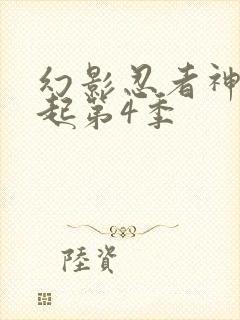 幻影忍者神
起第4季
陸資